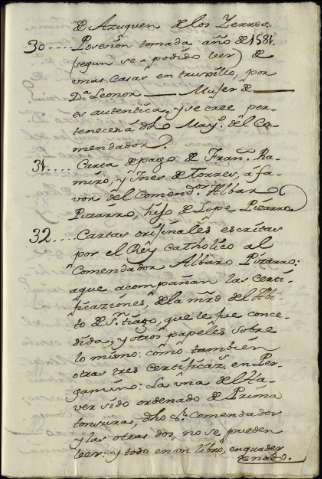 de Azuquen de los Zerros.
30.... Posesion tomada año de 1581.
(segun se a podido leer) de
unas Casas en truxillo, por
Dª Leonor ——— Muger de ———
es autentica, y se cree per-
tenecera a dho Mayº. del Co-
mendador.
31.... Carta de pago de Franº. Ra-
miro, y Ines de Torres, a fa-
vor del Comendºr Albaro
Pizarro, hijo de Lope Pizarro
32.... Cartas originales escritas
por el Rey Catholico al
Comendador Albaro Pizarro:
aque acompañan las Certi-
ficaziones, de la mrd del Abi-
to de Sntiago, que le fue conce-
dida, y otros papeles sobre
lo mismo: como tambien
otras tres Certificazs. en Per-
gamino. La una de Ha-
ver sido ordenado de Prima
tonsura, dho Sr. Comendador
y las otras dos, no se pueden
leer. y todo en un libro, enquader
nado.